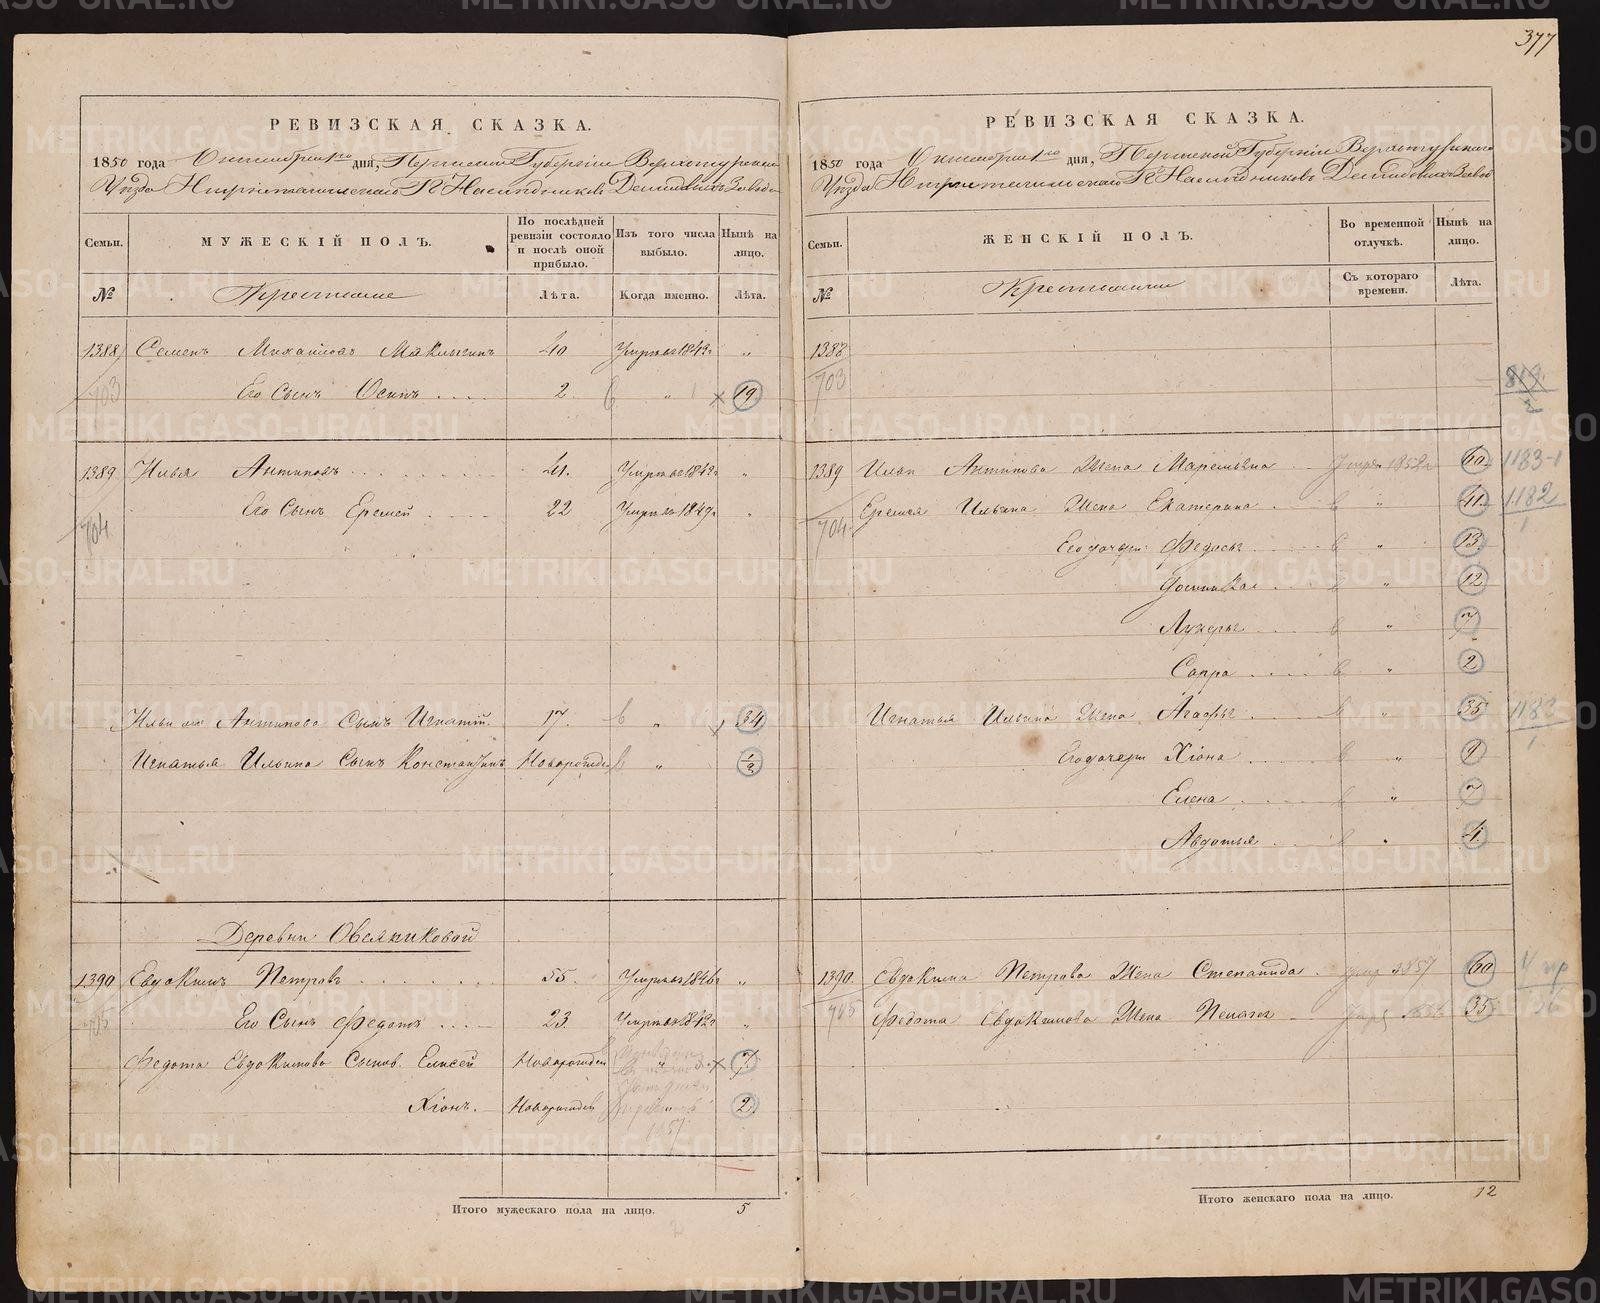 377
РЕВИЗСКАЯ СКАЗКА.
1850 года Октября 1го дня, Пермской Губернiи Верхотурскаго
Уѣзда Нижнетагильскаго Гг. Наслѣдниковъ Демидовыхъ Завода
Семьи.
МУЖЕСКIЙ ПОЛЪ.
По послѣдней ревизiи состояло и послѣ оной прибыло.
Изъ того числа выбыло.
Нынѣ на лицо.
№
Крестьяне
Лѣта.
Когда именно.
Лѣта.
1388 Семенъ Михайловъ 40 Умръ въ 1843г „
703 Его Сынъ Осипъ .... 2. „ 19
1389 Илья Антиповъ ........ 41. Умръ въ 1842г „
704 Его Сынъ Еремей .... 22 Умръ въ 1849г „
Ильи Антипова Сынъ Игнатiй. 17. „ 34
Игнатья Ильина Сынъ Константинъ Новорожден „ 1/2
Деревни Овсяниковой
1390 Евдокимъ Петровъ ........ 55. Умръ въ 1846г „
705 Его Сынъ Федотъ .... 23. Умръ въ 1842г „
Федота Евдокимова Сынов. Елисей Новорожден „ 7.
Хiонъ. Новорожден 2
1857
Итого мужескаго пола на лицо. 5
РЕВИЗСКАЯ СКАЗКА.
1850 года Октября 1го дня, Пермской Губернiи Верхотурскаго
Уѣзда Нижнетагильскаго Гг. Наслѣдниковъ Демидовыхъ Завод
Семьи.
ЖЕНСКIЙ ПОЛЪ.
Во временной отлучкѣ.
Нынѣ на лицо.
№
Крестьянки
Съ котораго времени.
Лѣта.
1388
703
817
1389 Ильи Антипова Жена Маремьяна 60 1183-1
704 Еремея Ильина Жена Екатерина . „ 41. 1182
1
Его дочери: Федосья ...... „ 13.
„ 12
Лукерья .... „ 7
Сапра .... „ 2
Игнатья Ильина Жена Агафья . „ 35 1182
1
Его дочери Хiона ...... „ 9
Елена ...... „ 7
Авдотья .... „ 4.
1390 Евдокима Петрова Жена Степанида . умр 1857 60
705 Федота Евдокимова Жена Пелагея 35
Итого женскаго пола на лицо. 12
METRIKI.GASO-URAL.RU